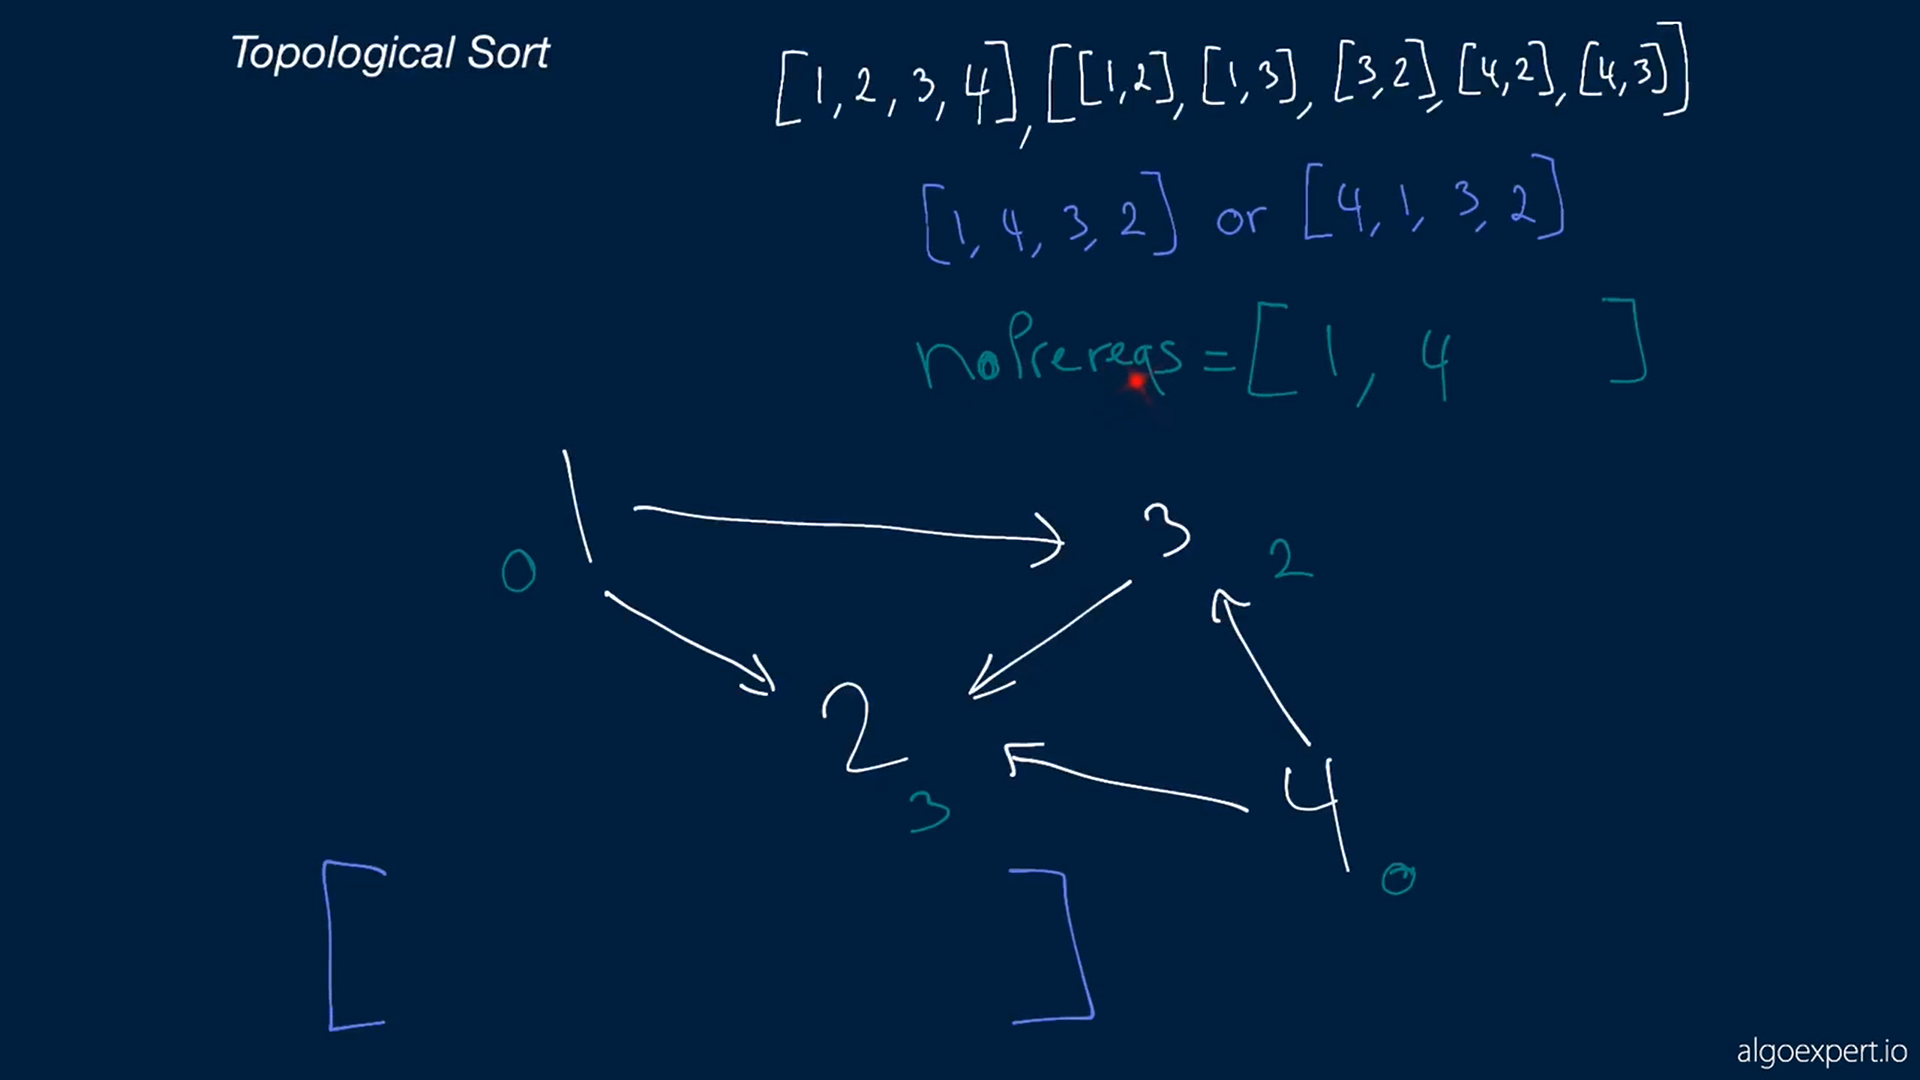 Topological Sort
[1, 2, 3, 4], [[1,2], [1,3], [3,2], [4,2], [4,3]]
[1, 4, 3, 2] or [4, 1, 3, 2]
noPrereqs = [ 1, 4 ]
1
3
0
2
2
4
3
0
[ ]
algoexpert.io